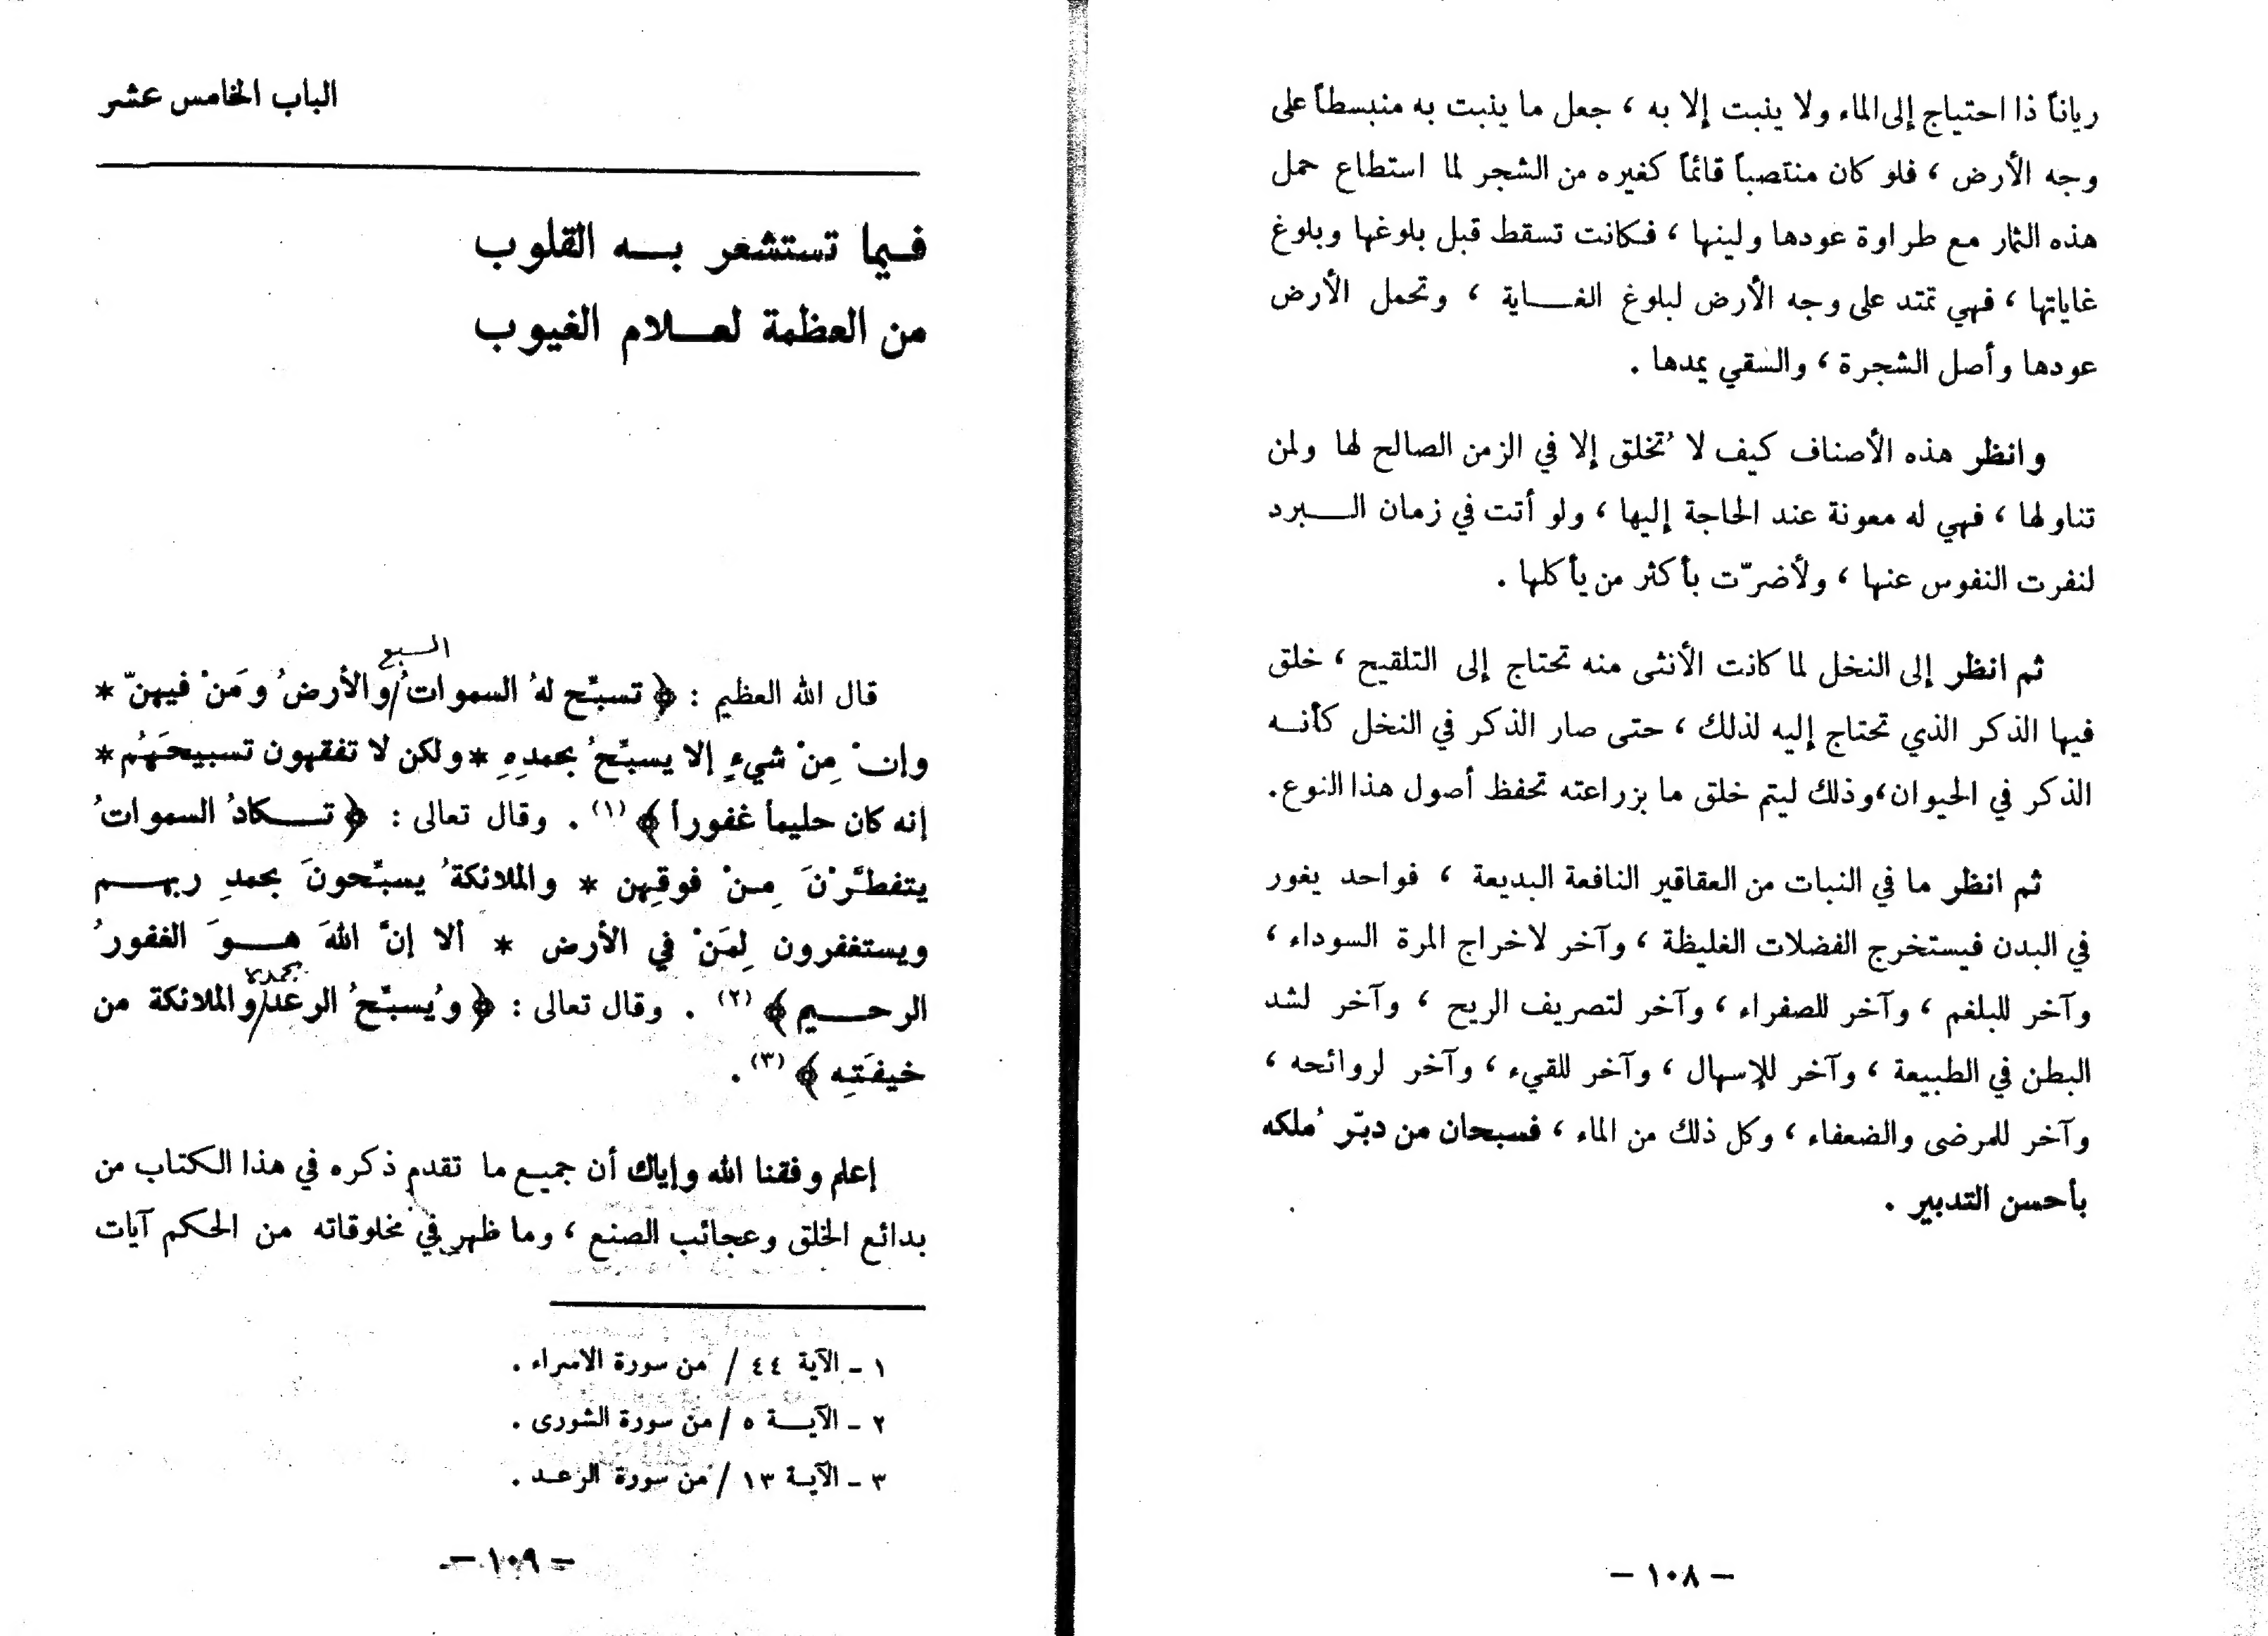 رياناً ذا احتياج إلى الماء ولا ينبت إلا به ، جعل ما ينبت به منبسطاً على
وجه الأرض ، فلو كان منتصباً قائماً كغيره من الشجر لما استطاع حمل
هذه الثمار مع طراوة عودها ولينها ، فكانت تسقط قبل بلوغها وبلوغ
غاياتها ، فهي تمتد على وجه الأرض لبلوغ الغـــاية ، وتحمل الأرض
عودها وأصل الشجرة ، والسقي يمدها .
وانظر هذه الأصناف كيف لا تُخلق إلا في الزمن الصالح لها ولمن
تناولها ، فهي له معونة عند الحاجة إليها ، ولو أتت في زمان الـــبرد
لنفرت النفوس عنها ، ولأضرّت بأكثر من يأكلها .
ثم انظر إلى النخل لما كانت الأنثى منه تحتاج إلى التلقيح ، خلق
فيها الذكر الذي تحتاج إليه لذلك ، حتى صار الذكر في النخل كأنـه
الذكر في الحيوان،وذلك ليتم خلق ما بزراعته تحفظ أصول هذا النوع.
ثم انظر ما في النبات من العقاقير النافعة البديعة ، فواحد يغور
في البدن فيستخرج الفضلات الغليظة ، وآخر لاخراج المرة السوداء ،
وآخر للبلغم ، وآخر للصفراء ، وآخر لتصريف الريح ، وآخر لشد
البطن في الطبيعة ، وآخر للإسهال ، وآخر للقيء ، وآخر لروائحه ،
وآخر للمرضى والضعفاء ، وكل ذلك من الماء ، فسبحان من دبّر مُلكه
بأحسن التدبير .
– ١٠٨ –
الباب الخامس عشر
فـيما تستشعر بـــه القلوب
من العظمة لعـــلام الغيوب
السبع
قال الله العظيم : ﴿ تسبّح لهُ السمواتُ/والأرضُ ومَنْ فيهنّ *
وإنْ مِنْ شيءٍ إلا يسبّحُ بحمدِهِ * ولكن لا تفقهون تسبيحَهُم *
إنه كان حليماً غفوراً ﴾ (١) . وقال تعالى : ﴿ تـــكادُ السمواتُ
يتفطَّرْنَ مِـنْ فوقِهن * والملائكةُ يسبّحونَ بحمدِ ربهـــم
ويستغفرون لِمَنْ في الأرض * ألا إنَّ اللهَ هـــوَ الغفورُ
بحمده
الرحـــيم ﴾ (٢) . وقال تعالى : ﴿ ويُسبّحُ الرعدُ/والملائكة من
خيفَتِه ﴾ (٣) .
إعلم وفقنا الله وإياك أن جميع ما تقدم ذكره في هذا الكتاب من
بدائع الخلق وعجائب الصنع ، وما ظهر في مخلوقاته من الحكم آيات
١ – الآية ٤٤ / من سورة الاسراء .
٢ – الآيـــة ٥ / من سورة الشورى .
٣ – الآيـة ١٣ / من سورة الرعـد .
– ١٠٩ –